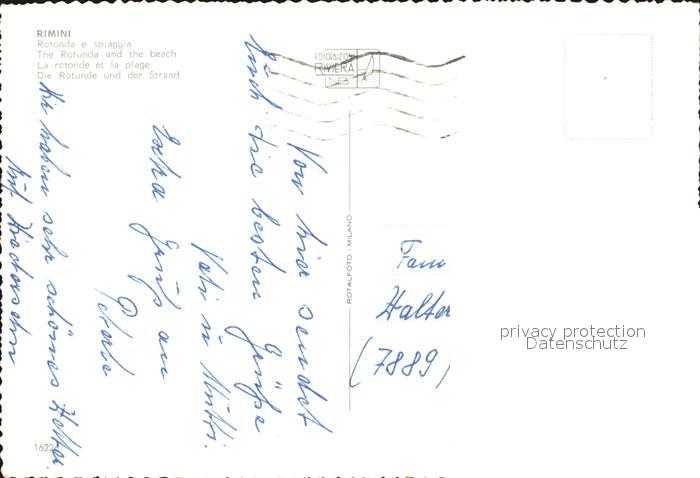 RIMINI
Rotonda e spiaggia
The Rotunda and the beach
La rotonde et la plage
Die Rotunde und der Strand
FOTORNIZIONI
RIVIERA
Von hier sendet
Euch die besten Grüße
Vati u. Mutti.
Extra Grüß an
Wir haben sehr schönes Wetter.
Auf Wiedersehn
ROTALFOTO - MILANO
Fam
Halter
(7889)
privacy protection
Datenschutz